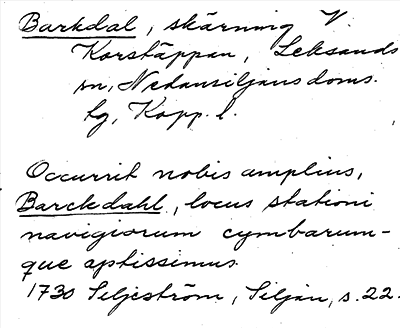 Barkdal, skärning V
Korstäppan, Leksands
sn, Nedansiljans doms.
hg, Kopp. l.
Occurrit nobis amplius,
Barckdahl, locus stationi
navigiorum cymbarum-
que aptissimus.
1730 Siljeström, Siljan, s. 22.